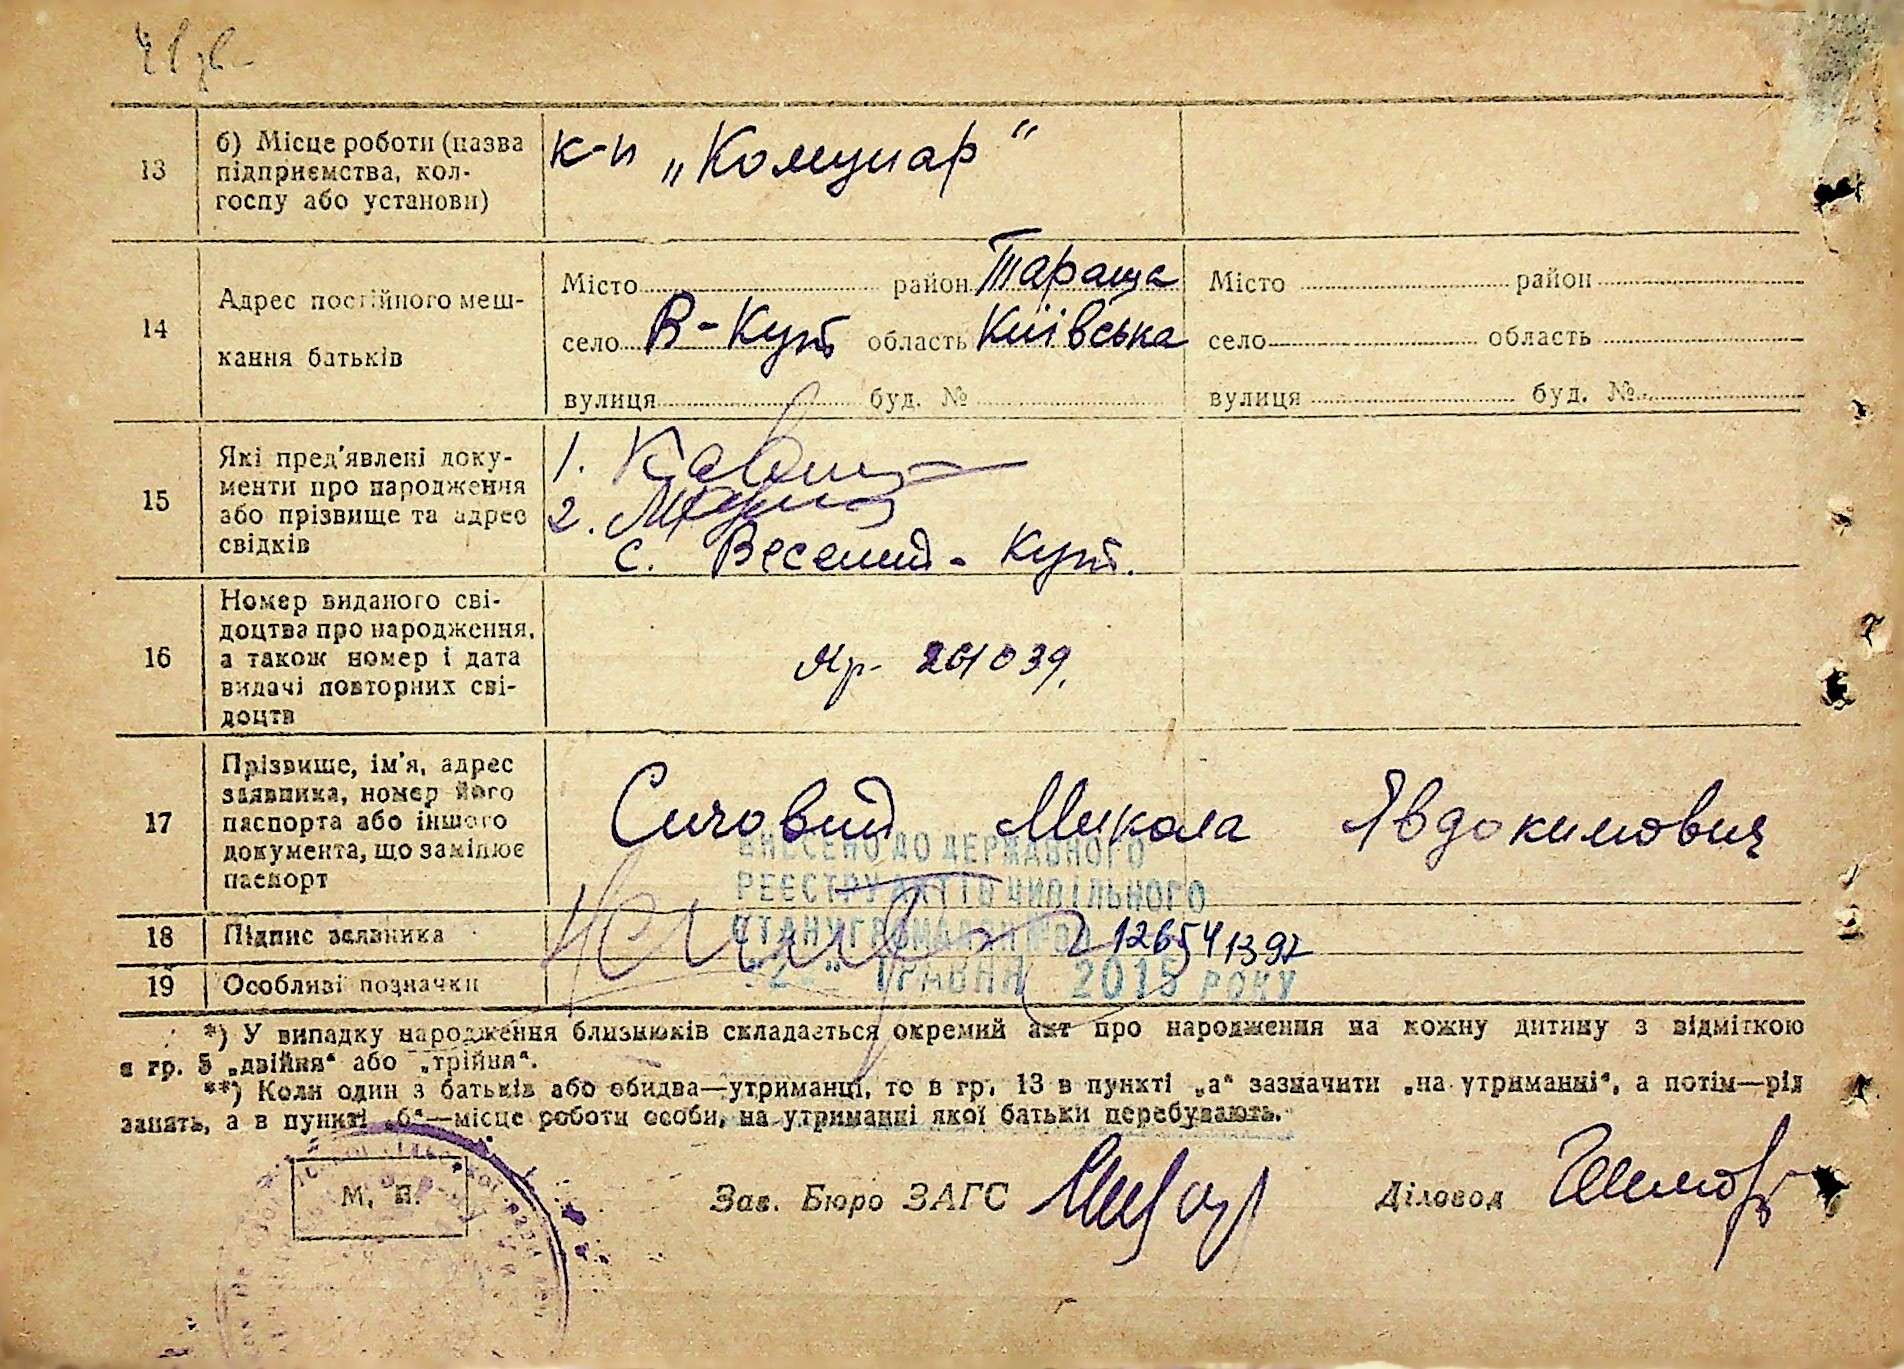 13
б) Місце роботи (назва
підприємства, кол-
госпу або установи)
к-п „Комунар“
14
Адрес постійного меш-
кання батьків
Місто район Тараща
село В-Кут область Київська
вулиця буд. №
Місто район
село область
вулиця буд. №
15
Які пред'явлені доку-
менти про народження
або прізвище та адрес
свідків
1.
2.
с. Веселий-Кут.
16
Номер виданого сві-
доцтва про народження,
а також номер і дата
видачі повторних сві-
доцтв
261039.
17
Прізвище, ім'я, адрес
заявника, номер його
паспорта або іншого
документа, що замінює
паспорт
Сичовий Микола Явдокимович
ВНЕСЕНО ДО ДЕРЖАВНОГО
РЕЄСТРУ АКТІВ ЦИВІЛЬНОГО
СТАНУ ГРОМАДЯН
ТРАВНЯ 2015 РОКУ
18
Підпис заявника
19
Особливі позначки
*) У випадку народження близнюків складається окремий акт про народження на кожну дитину з відміткою
в гр. 5 „двійня“ або „трійня“.
**) Коли один з батьків або обидва—утриманці, то в гр. 13 в пункті „а“ зазначити „на утриманні“, а потім—рід
занять, а в пункті „б“—місце роботи особи, на утриманні якої батьки перебувають.
М. П.
Зав. Бюро ЗАГС
Діловод